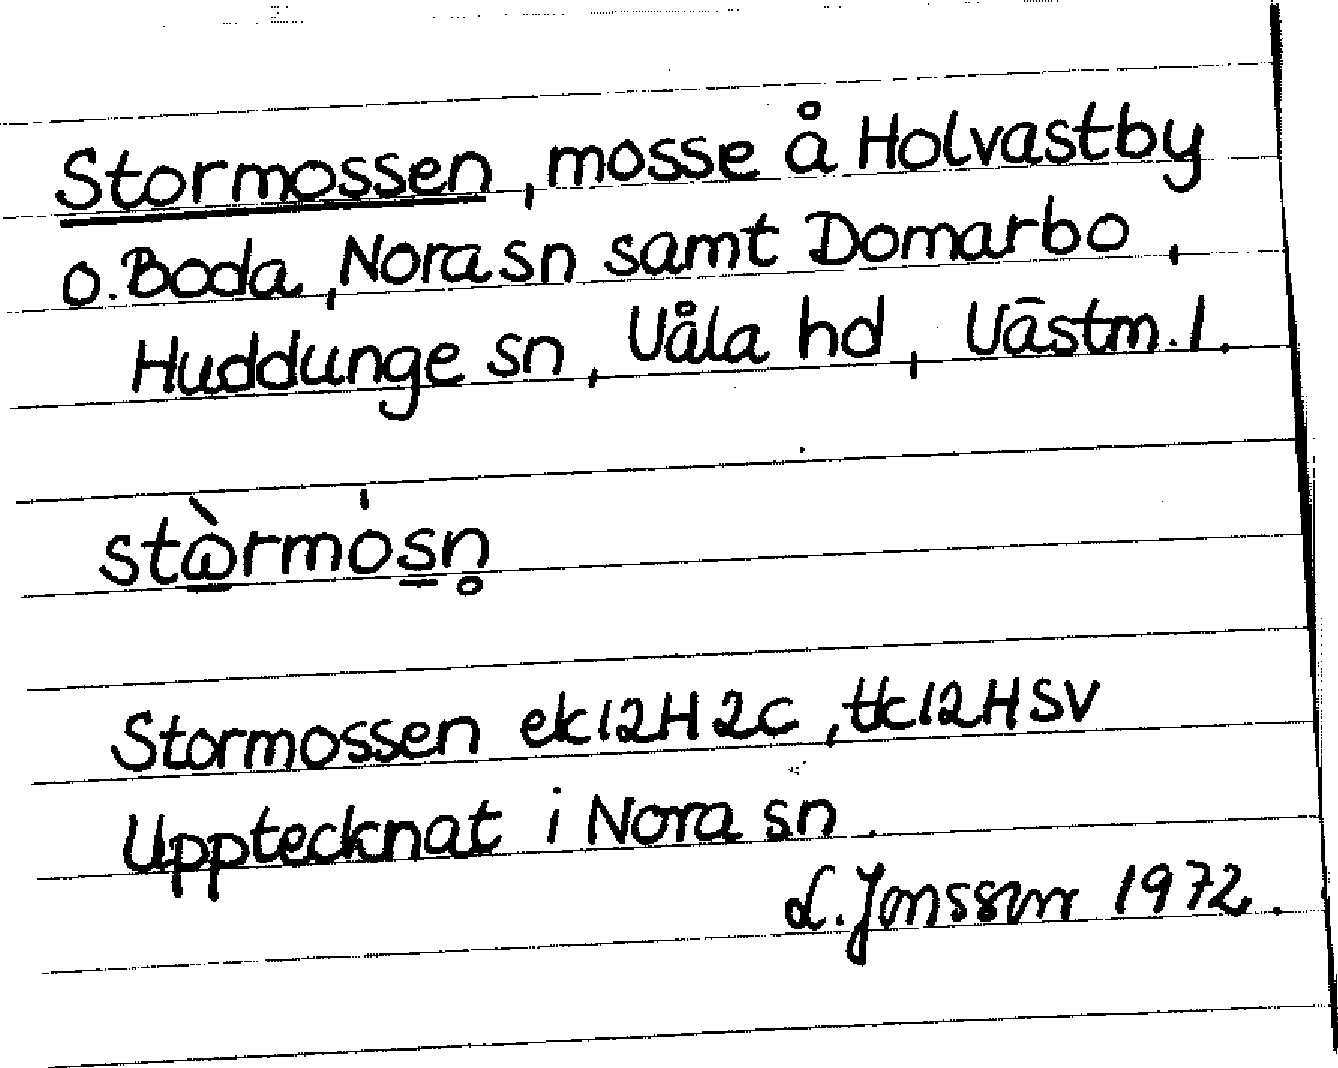 Stormossen, mosse å Holvastby
o. Boda, Nora sn samt Domarbo,
Huddunge sn, Våla hd, Västm. l.
stὼrmósn̥
Stormossen ek 12H2c, tk 12HSV
Upptecknat i Nora sn.
L. Jonsson 1972.